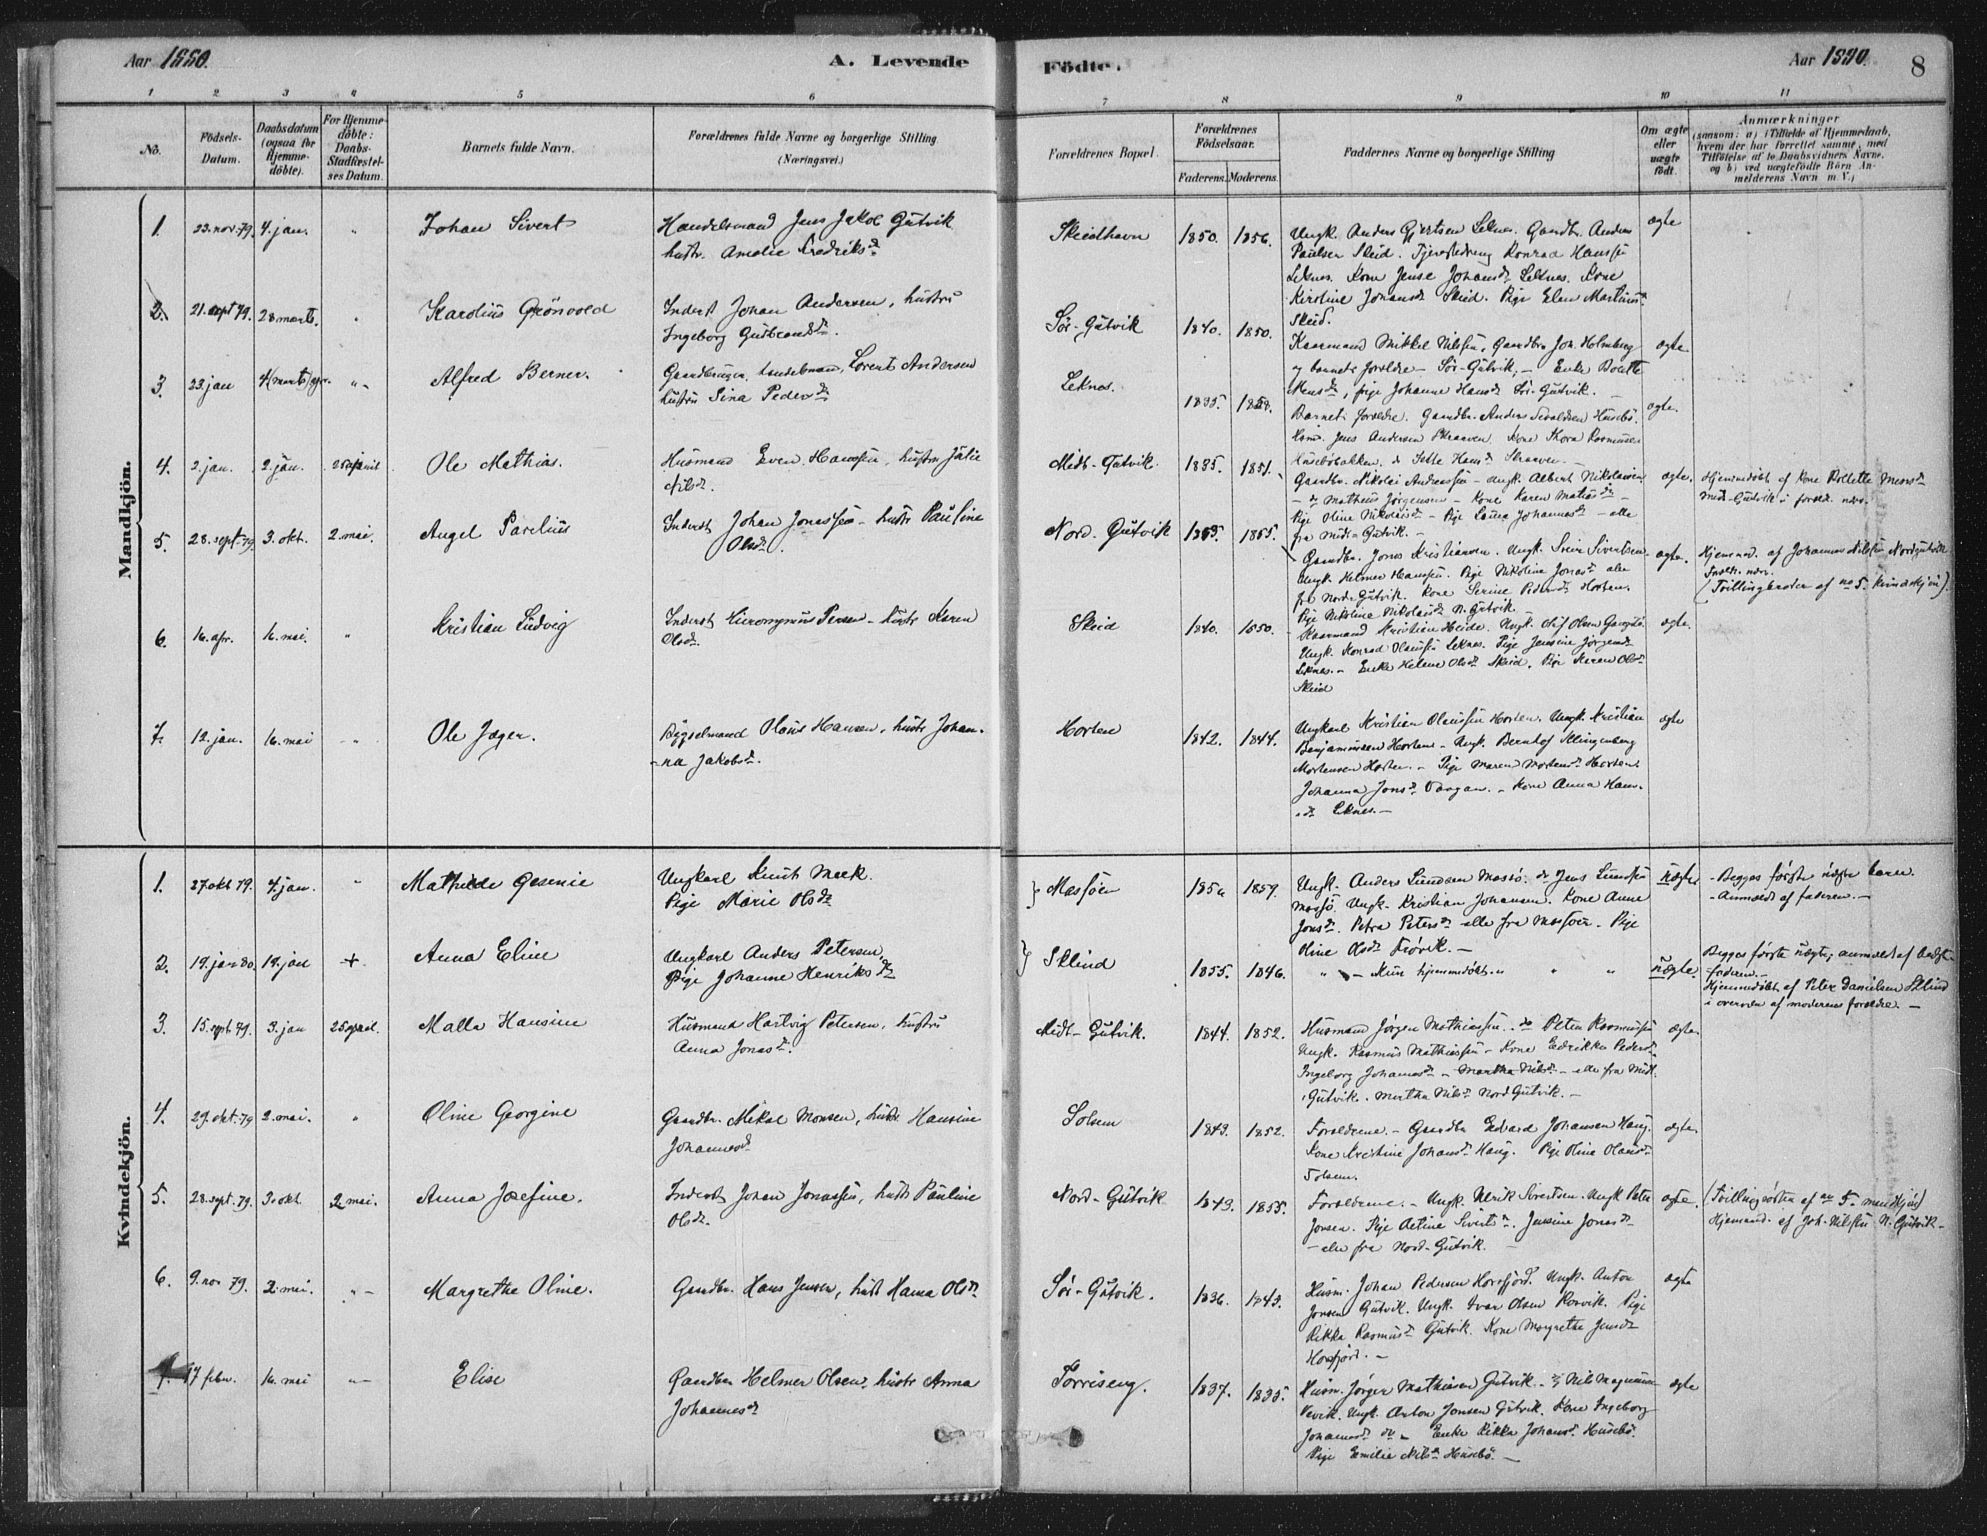 Aar 1880.
A. Levende
Födte.
Aar 1880.
8
1 2 3 4 5 6 7 8 9 10 11
No.
Födsels-
Datum.
Daabsdatum
(ogsaa for
Hjemme-
döbte).
For Hjemme-
döbte:
Daabs-
Stadfæstel-
ses Datum.
Barnets fulde Navn.
Forældrenes fulde Navne og borgerlige Stilling
(Næringsvei.)
Forældrenes Bopæl.
Forældrenes
Födselsaar.
Faderens. Moderens.
Faddernes Navne og borgerlige Stilling
Om ægte
eller
uægte
födt.
Anmærkninger
(saasom: a) i Tilfælde af Hjemmedaab,
hvem der har forrettet samme, med
Tilföielse af to Daabsvidners Navne.
og b) ved uægtefödte Börn An-
melderens Navn m. V.)
Mandkjön.
1. 23. nov. 79. 4. jan. " Johan Sivert
Handelsmand Jens Jakob Gutvik
hustr. Amalie Fredriksd.
Skeidhavn 1850. 1856.
Ungk. Anders Gjertsen Leknes. Gaardbr. Anders
Paulsen Skeid. Konrad Hanssen
Leknes. Kone Jense Johansd. Leknes. Kone
Kirstine Johansd. Skeid. Pige Elen
Skeid.
ægte
2. 21. sept 79. 28 marts. " Karolius Grönvold
Inderst Johan Andersen, hustru
Ingeborg Gudbrandsd.
Sör-Gutvik 1840. 1850.
Kaarmand Mikkel Nilssen, Gaardbr. Joh. Holmberg
og barnets forældre - Sör-Gutvik, - Enke Bolette
Monsd., pige Johanne Hansd. Sör-Gutvik.
ægte.
3. 23. jan "- Alfred Berner.
Gaardbruger, Lorents Andersen
hustru Sina Pedersd.
Leknes. 1835.
Barnets forældre. Gaardbr. Anders Husebö.
Husm. Jens Andersen Skraaven. Kone Thora Rasmussen
Huseböbakken. Hansd. Skraaven.
ægte.
4. 2. jan. 2. jan. 25 april Ole Mathias.
Husmand Even Hanssen, hustru Julie
Nilsd.
Midt-Gutvik. 1835. 1851.
Gaardbr. Nikolai Andreassen - ungk. Albert Nikolaisen
- Matheus Jörgensen - Kone Karen
Pige Oline Nikolaisd. - Pige Laura Johannesd. - alle
fra Midt-Gutvik. -
ægte.
Hjemmedöbt af Kone Bollette Monsd.
Midt-Gutvik i foræld. nærv.
5. 28. sept. 79. 3. okt. 2. mai. Angel Parelius
Inderst Johan Jonassen - hustr Pauline
Olsd.
Nord-Gutvik 1855.
Gaardbr. Jonas Kristiansen. Ungk. Sivertsen.
Ungk. Helmer Hanssen. Pige Nikoline Jonasd. alle
fra Nord-Gutvik. Kone Serine Pedersd. Horten.
Pige Nikoline Nikolaisd. N. Gutvik
ægte.
Hjemmed. af Johannes Nilssen Nordgutvik
foræld. nærv.
(Tvillingbroder af no 5. kvindekjön).
6. 16. apr. 16. mai. " Kristian Ludvig
Inderst Hieronymus Persen - hustr Karen
Olsd.
Skeid 1840. 1850.
Kaarmand Kristian Heide. Ungk. Olif Olsen
Ungk. Konrad Olaussen Leknes. Pige Jensine Jörgensd.
Leknes. - Enke Helene Olsd. Skeid. Pige Karen Olsd.
Skeid
ægte.
7. 12. jan. 16. mai - " Ole Jæger.
Bygselmand Olaus Hansen, hustr Johan-
-na Jakobsd.
Horten 1842. 1844.
Ungkarl Kristian Olaussen Horten. Ungk. Kristian
Benjaminsen Horten - Ungk. Bernhof Klingenberg
Mortensen Horten. - Pige Maren Mortensd. Horten
Johanna Jonsd. - Kone Anna Hans-
d. Leknes. -
ægte
Kvindekjön.
1. 27. okt 79. 4. jan. " Mathilde Gesenie
Ungkarl Knut Meek.
Pige Marie Olsd.
Masöen 1859.
Ungk. Anders Masö. Jens
Masö. Ungk. Kristian Johansen. Kone Anne
Jonsd. Petra Petersd. alle fra Masöen. Pige
Oline Olsd. -
uægte
- Begges förste uægte barn.
- Anmeldt af faderen. -
2. 19. jan 80. 19. jan + Anna Eline
Ungkarl Anders Petersen
Pige Johanne Henriksd.
Sklind 1855. 1846.
" - Kun hjemmedöbt. " " "
uægte.
Begges förste uægte; anmeldt af bedst-
faderen. -
Hjemmedöbt af Peter Danielsen Sklind
i overvær af moderens forældre. -
3. 15. sept. 79. 3. jan 25 april. Malla Hansine
Husmand Hartvig Petersen, hustru
Anna Jonasd.
Midt-Gutvik. 1844. 1852.
Husmand Jörgen Mathiassen. do Peter Rasmussen
Ungk. Rasmus Mathiassen - Kone Edrikke Pedersd.
Ingeborg Johannesd. - Martha Nilsd. - alle fra Midt-
Gutvik. Martha Nilsd. Nord Gutvik. -
ægte
4. 29. okt. 79 2. mai. " Oline Georgine
Gaardbr. Mikal Monsen, hustr Hansine
Johannesd.
Solsem 1843. 1852.
Forældrene. - Gaardbr Edvard Johansen Haug.
Kone Kristine Johansd. Haug. Pige Oline Olausd.
Solsem.
ægte
5. 28. sept. 79. 3. okt. 2 mai. Anna Josefine.
Inderst Johan Jonassen, hustr Pauline
Olsd.
Nord-Gutvik 1843. 1855.
Forældrene. - Ungk. Ulrik Sivertsen. Ungk Peter
Jonsen. Pige Aetine Sivertsd. Jensine Jonasd. -
- alle fra Nord-Gutvik. -
ægte.
(Tvillingsöster af no 5. mandkjön)
Hjemmed. af Joh. Nilssen N. Gutvik -
6. 9. nov 79. 2. mai. "- Margrethe Oline.
Gaardbr. Hans Jensen, hust Hanna Olsd.
Sör-Gutvik. 1836. 1843.
Husm. Johan Pedersen Horsfjord. Ungk. Anton
Jonsen Gutvik. Ungk. Ivar Olsen Rörvik. Pige
Rikka Rasmusd. Gutvik. Kone Margrethe Jensd.
Horsfjord. -
ægte
7. 17 febr. 16. mai "- Elise
Gaardbr Helmer Olsen, hustr Anna
Johannesd.
Torriseng. 1837. 1835.
Husm. Jörgen Mathiasen Gutvik. - Nils Magnussen
Vevik. Ungk. Anton Jonsen Gutvik. Kone Ingeborg
Johannesd. do - Enke Rikka Johansd. Husebö.
Pige Emilie Nilsd. Husebö. -
ægte